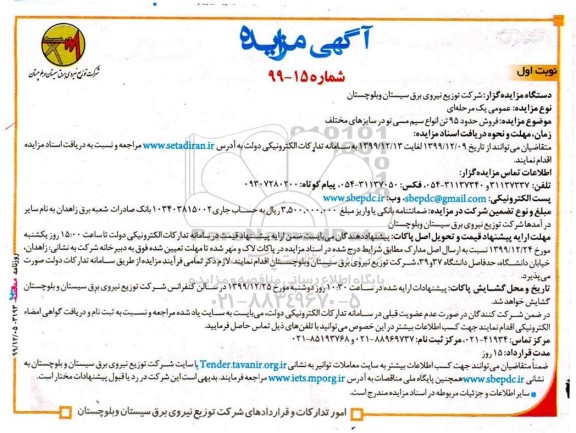 آگهی مزایده
شماره ۱۵-۹۹
شرکت توزیع نیروی برق سیستان و بلوچستان
نوبت اول
دستگاه مزایده‌گزار: شرکت توزیع نیروی برق سیستان وبلوچستان
نوع مزایده: عمومی یک مرحله‌ای
موضوع مزایده: فروش حدود ۹۵ تن انواع سیم مسی نو در سایزهای مختلف
زمان، مهلت و نحوه دریافت اسناد مزایده:
متقاضیان می‌توانند از تاریخ ۱۳۹۹/۱۲/۰۹ لغایت ۱۳۹۹/۱۲/۱۳ به سامانه تدارکات الکترونیکی دولت به آدرس www.setadiran.ir مراجعه و نسبت به دریافت اسناد مزایده
اقدام نمایند.
اطلاعات تماس مزایده‌گزار:
تلفن: ۳۱۱۳۷۳۳۷ و ۳۱۱۳۷۳۴۰-۰۵۴، فکس: ۳۱۱۳۷۰۵۰-۰۵۴، پیام کوتاه: ۰۹۳۰۷۲۸۰۲۰۰
پست الکترونیکی: sbepdc@gmail.com، وب: www.sbepdc.ir
مبلغ و نوع تضمین شرکت در مزایده: ضمانتنامه بانکی یا واریز مبلغ ۳,۵۰۰,۰۰۰,۰۰۰ ریال به حساب جاری ۱۰۳۴۰۳۸۱۵۰۰۲ بانک صادرات شعبه برق زاهدان به نام سایر
درآمدها شرکت توزیع نیروی برق سیستان وبلوچستان
مهلت ارایه پیشنهاد قیمت و تحویل اصل پاکات: پیشنهاددهندگان می‌بایست ضمن ارایه پیشنهاد قیمت در سامانه تدارکات الکترونیکی دولت تا ساعت ۱۵:۰۰ روز یکشنبه
مورخ ۱۳۹۹/۱۲/۲۴ نسبت به ارسال اصل مدارک مطابق شرایط درج شده در اسناد مزایده در پاکات لاک و مهر شده تا مهلت تعیین شده فوق به دبیرخانه شرکت به نشانی: زاهدان،
خیابان دانشگاه، حدفاصل دانشگاه ۳۷ و ۳۹، شرکت توزیع نیروی برق سیستان وبلوچستان اقدام نمایند. لازم ذکر تمامی فرآیند مزایده از طریق سامانه تدارکات دولت صورت
می‌پذیرد.
تاریخ و محل گشایش پاکات: پیشنهادات ارایه شده در ساعت ۱۰:۳۰ روز دوشنبه مورخ ۱۳۹۹/۱۲/۲۵ در سالن کنفرانس شرکت توزیع نیروی برق سیستان وبلوچستان
گشایش خواهد شد.
در ضمن شرکت کنندگان در صورت عدم عضویت قبلی در سامانه تدارکات الکترونیکی دولت، می‌بایست به سایت یاد شده مراجعه و نسبت به ثبت نام و دریافت گواهی امضاء
الکترونیکی اقدام نمایند جهت کسب اطلاعات بیشتر در این خصوص می‌توانید با تلفن‌های ذیل تماس حاصل فرمایید.
مرکز تماس: ۴۱۹۳۴-۰۲۱، دفتر ثبت نام: ۸۸۹۶۹۷۳۷-۰۲۱ و ۸۵۱۹۳۷۶۸-۰۲۱
مدت قرارداد: ۱۵ روز
ضمناً متقاضیان می‌توانند جهت کسب اطلاعات بیشتر به سایت معاملات توانیر به نشانی Tender.tavanir.org.ir یا سایت شرکت توزیع نیروی برق سیستان و بلوچستان به
نشانی www.sbepdc.ir وهمچنین پایگاه ملی مناقصات به آدرس www.iets.mporg.ir مراجعه فرمایند. بدیهی است این شرکت در رد یا قبول پیشنهادات مختار است.
سایر اطلاعات و جزئیات مربوطه در اسناد مزایده مندرج است.
امور تدارکات و قراردادهای شرکت توزیع نیروی برق سیستان وبلوچستان
پایگاه اطلاع رسانی مناقصه و مزایده
۰۲۱-۸۸۳۴۹۶۷۰-۵